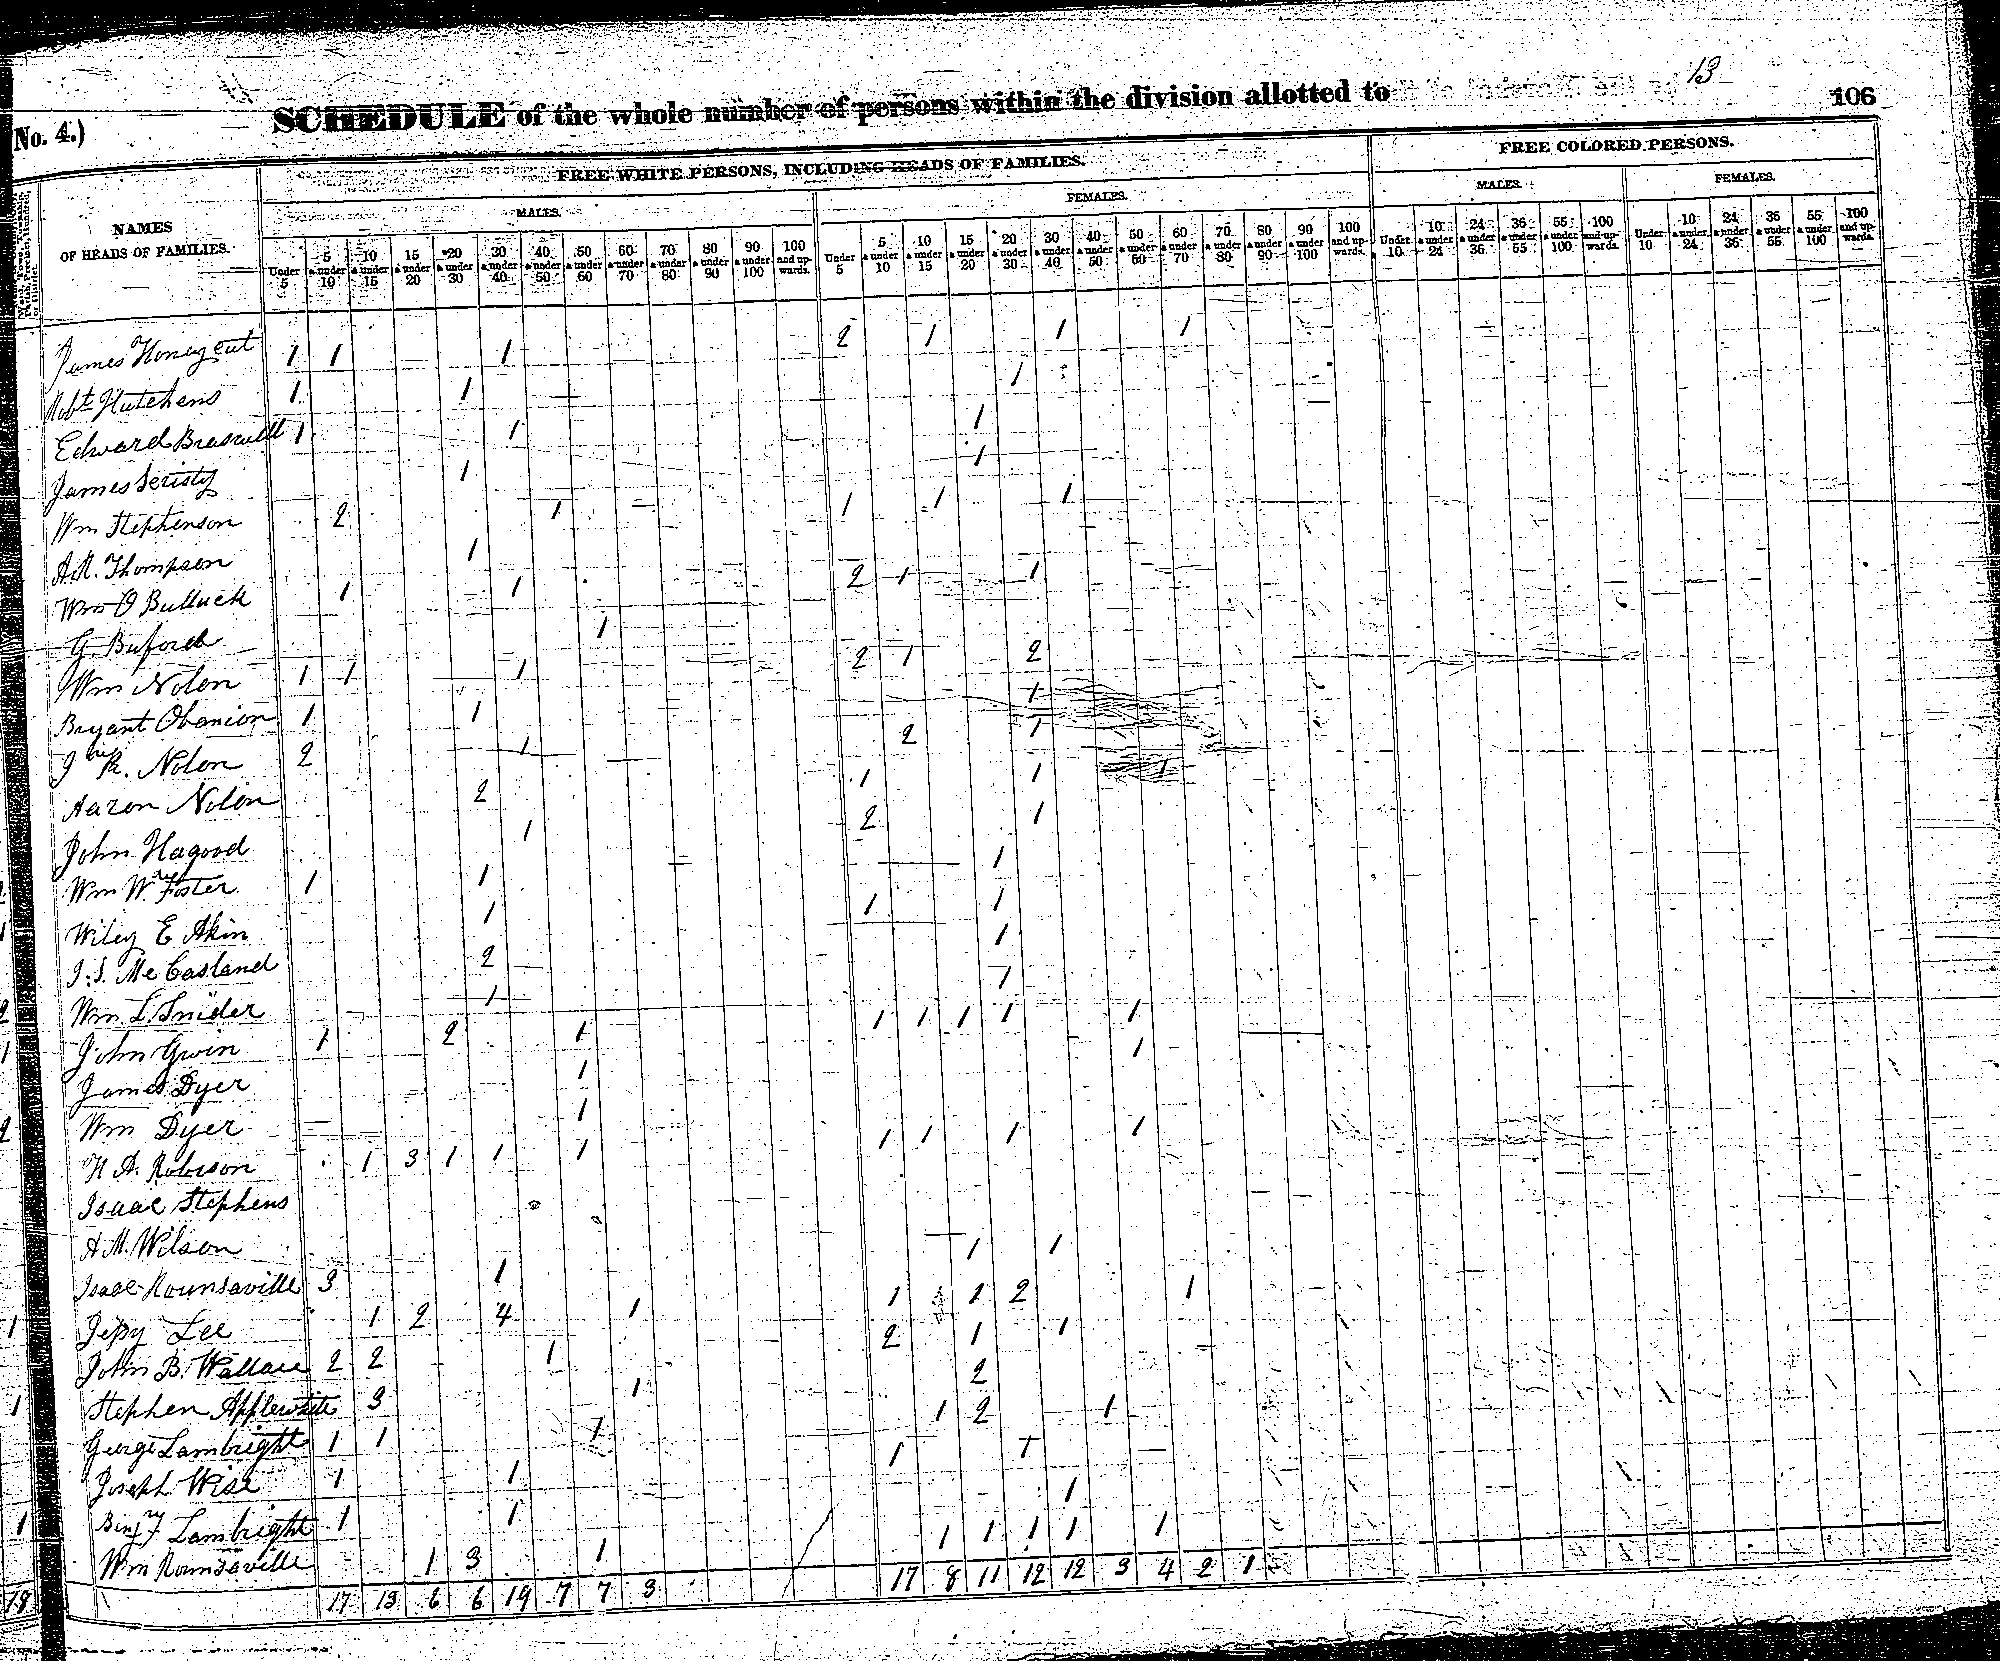 13
106
No. 4.)
SCHEDULE of the whole number of persons within the division allotted to
FREE WHITE PERSONS, INCLUDING HEADS OF FAMILIES.
FREE COLORED PERSONS.
MALES.
FEMALES.
MALES
FEMALES.
NAMES
OF HEADS OF FAMILIES.
Under 5
5 & under 10
10 & under 15
15 & under 20
20 & under 30
30 & under 40
40 & under 50
50 & under 60
60 & under 70
70 & under 80
80 & under 90
90 & under 100
100 and upwards.
Under 5
5 & under 10
10 & under 15
15 & under 20
20 & under 30
30 & under 40
40 & under 50
50 & under 60
60 & under 70
70 & under 80
80 & under 90
90 & under 100
100 and upwards.
Under 10
10 & under 24
24 & under 36
36 & under 55
55 & under 100
100 and upwards.
Under 10
10 & under 24
24 & under 36
36 & under 55
55 & under 100
100 and upwards.
James Honeycut 1 1 1 2 1 1 1
Robt Hutchens 1 1 1
Edward Braswell 1 1 1
James 1 1
Wm Stephenson 2 1 1 1 1
A.R. Thompson 1
Wm O Bulluck 1 1 2 1 1
G. Buford 1
Wm Nolon 1 1 1 2 1 2
Bryant Obanion 1 1 1
Jno R. Nolon 2 1 2 1
Aaron Nolon 2 1 1 1
John Hagood 1 2 1
Wm W. Foster 1 1 1
Wiley E Akin 1 1 1
J. S. McCasland 2 1
Wm L. Snider 1 1
John Gwin 1 2 1 1 1 1 1 1
James Dyer 1 1
Wm Dyer 1
H A. Robison 1 3 1 1 1 1 1 1 1
Isaac Stephens
A M. Wilson
Isaac Rounsaville 3 1 1 1
1 Jessy Lee 1 2 4 1 1 1 2 1
John B. Wallace 2 2 1 2 1 1
1 Stephen Applewhite 3 1 2
George Lambright 1 1 1 1 2 1
Joseph Wise 1 1 1 1
1 Benj F Lambright 1 1 1
Wm Rounsaville 1 3 1 1 1 1 1 1
18 17 13 6 6 19 7 7 3 17 8 11 12 12 3 4 2 1